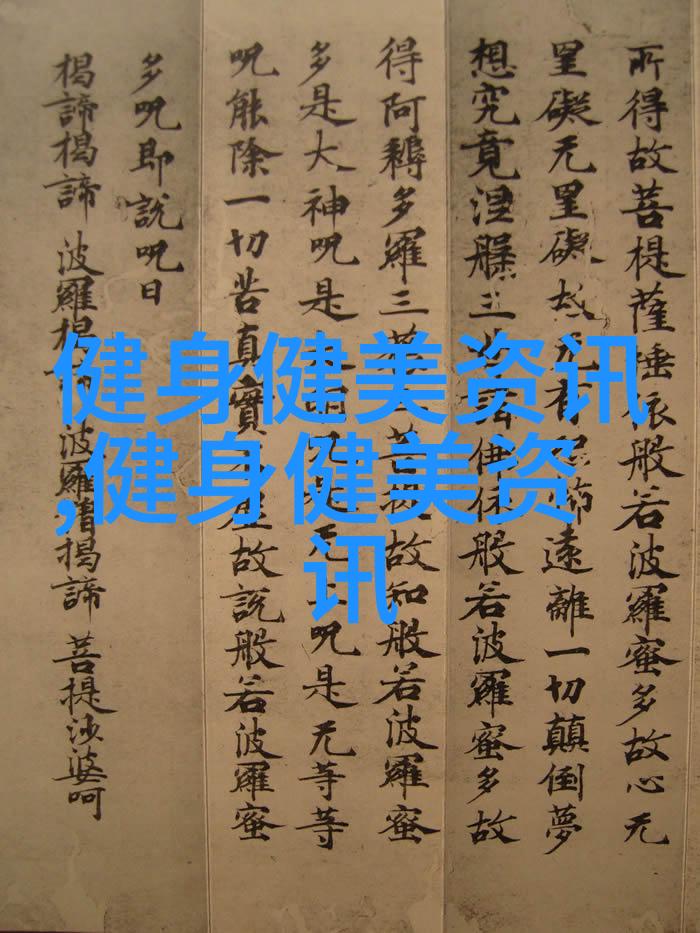 所得故菩提薩埵依般若波羅蜜多故心无
罣礙无罣礙故无有怖遠離一切顛倒夢
想究竟涅槃三世諸佛依般若波羅蜜多故
得阿耨多羅三藐菩提故知般若波羅蜜
多是大神呪是明呪是无上呪是无等等
呪能除一切苦真實虛故說般若波羅蜜
多呪即說呪曰
揭諦揭諦 波羅揭諦 波羅僧揭諦 菩提沙婆呵
健身健美资讯
,健身健美资
讯